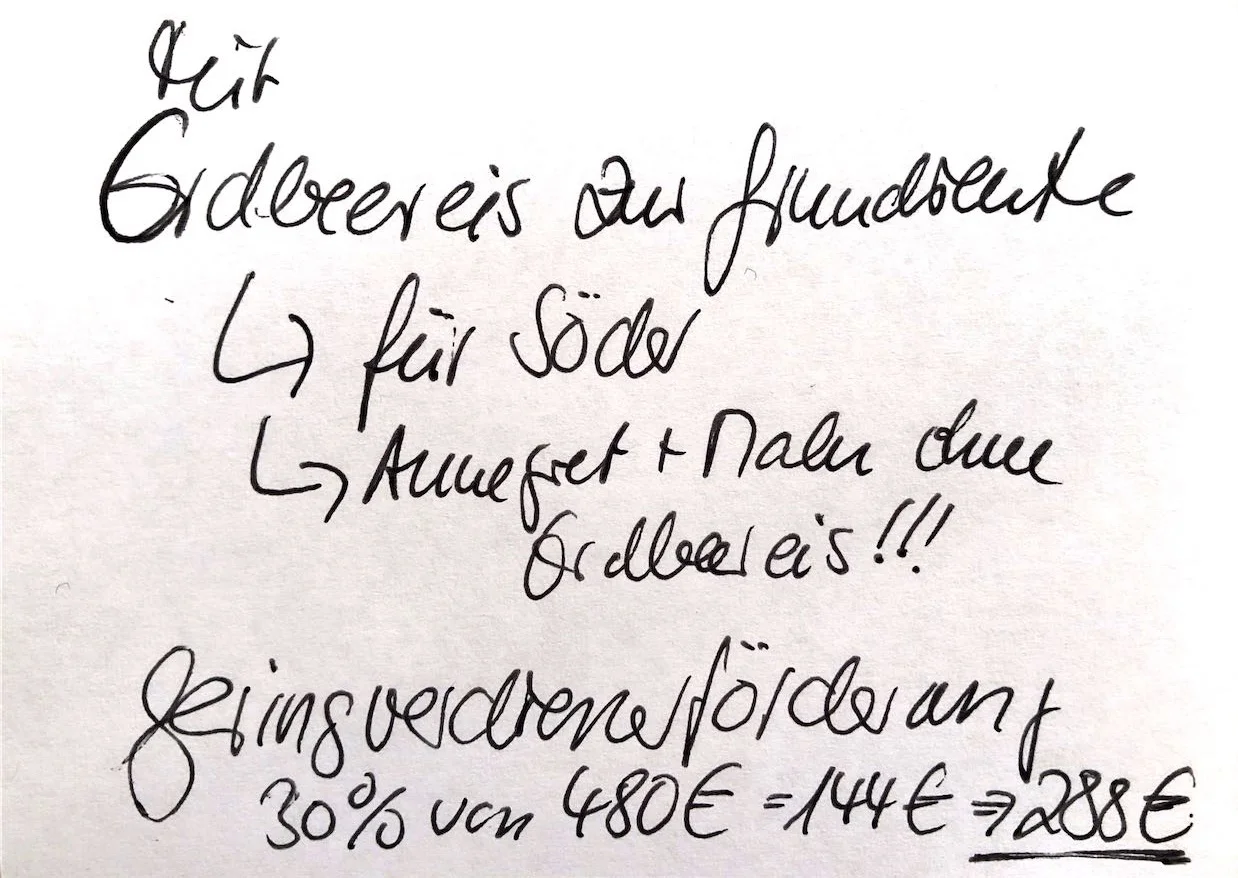 Mit
Erdbeereis zur Grundrente
↳ für Söder
↳ Annegret + Malu ohne
Erdbeereis!!!
Geringverdienerförderung
30% von 480€ = 144€ ⇒ 288€